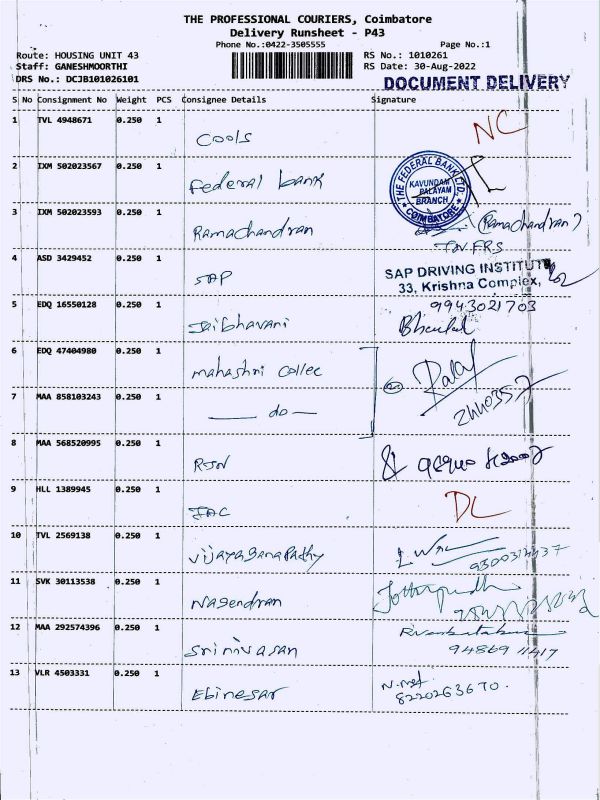 THE PROFESSIONAL COURIERS, Coimbatore
Delivery Runsheet - P43
Phone No.:0422-3505555
Page No.:1
Route: HOUSING UNIT 43
RS No.: 1010261
Staff: GANESHMOORTHI
RS Date: 30-Aug-2022
DRS No.: DCJB101026101
DOCUMENT DELIVERY
S No Consignment No Weight PCS Consignee Details Signature
1 TVL 4948671 0.250 1 Cools NC
2 IXM 502023567 0.250 1 Federal bank
THE FEDERAL BANK LTD.
KAVUNDAM
PALAYAM
BRANCH
COIMBATORE
3 IXM 502023593 0.250 1 Ramachandran (Ramachandran)
4 ASD 3429452 0.250 1 SAP
SAP DRIVING INSTITUTE
33, Krishna Complex,
5 EDQ 16550128 0.250 1 Jaibhavani
9943021703
6 EDQ 47404980 0.250 1 mahashri Collec
7 MAA 858103243 0.250 1 do
8 MAA 568520995 0.250 1 RJN
9 HLL 1389945 0.250 1 DL
10 TVL 2569138 0.250 1 vijayaganapathy
11 SVK 30113538 0.250 1 Nagendran
12 MAA 292574396 0.250 1 Srinivasan
94869 11417
13 VLR 4503331 0.250 1 Ebinesar
8220263670.